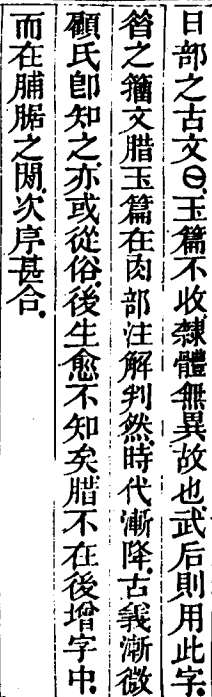 日部之古文𡆠玉篇不收隸體無異故也武后則用此字
昝之籒文腊玉篇在肉部注解判然時代漸降古義漸微
顧氏卽知之亦或從俗後生愈不知矣腊不在後增字中
而在脯䐹之閒次序甚合